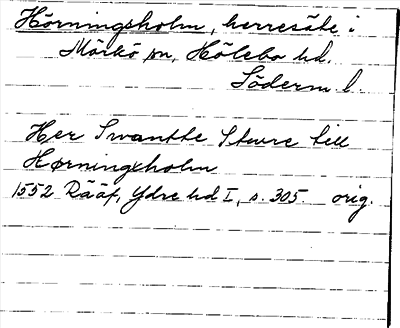 Hörningsholm, herresäte i
Mörkö sn, Hölebo hd.
Söderm l.
Her Swantte Sture till
Hørningxholm
1552 Rääf, Ydre hd I, s. 305. orig.